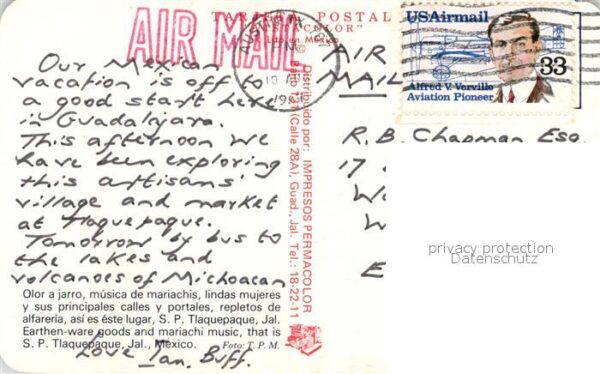 TARJETA POSTAL
"KOLORCOLOR"
Lito en Mexico
AIR MAIL
AUSTIN
PM
USAirmail
33
Alfred V. Verville
Aviation Pioneer
AIR
MAIL
Our Mexican
vacation is off to
a good start here
in Guadalajara.
This afternoon we
have been exploring
this artisans'
village and market
at Tlaquepaque.
Tomorrow by bus to
the lakes and
volcanoes of Michoacan
Love Ian. Buff.
R.B. Chapman Esq.
17
W
E
privacy protection
Datenschutz
Distribuido por: IMPRESOS PERMACOLOR
(Calle 28A), Guad., Jal. Tel.: 18-22-11
Olor a jarro, música de mariachis, lindas mujeres
y sus principales calles y portales, repletos de
alfarería, así es éste lugar, S. P. Tlaquepaque, Jal.
Earthen-ware goods and mariachi music, that is
S. P. Tlaquepaque, Jal., Mexico. Foto: T. P. M.